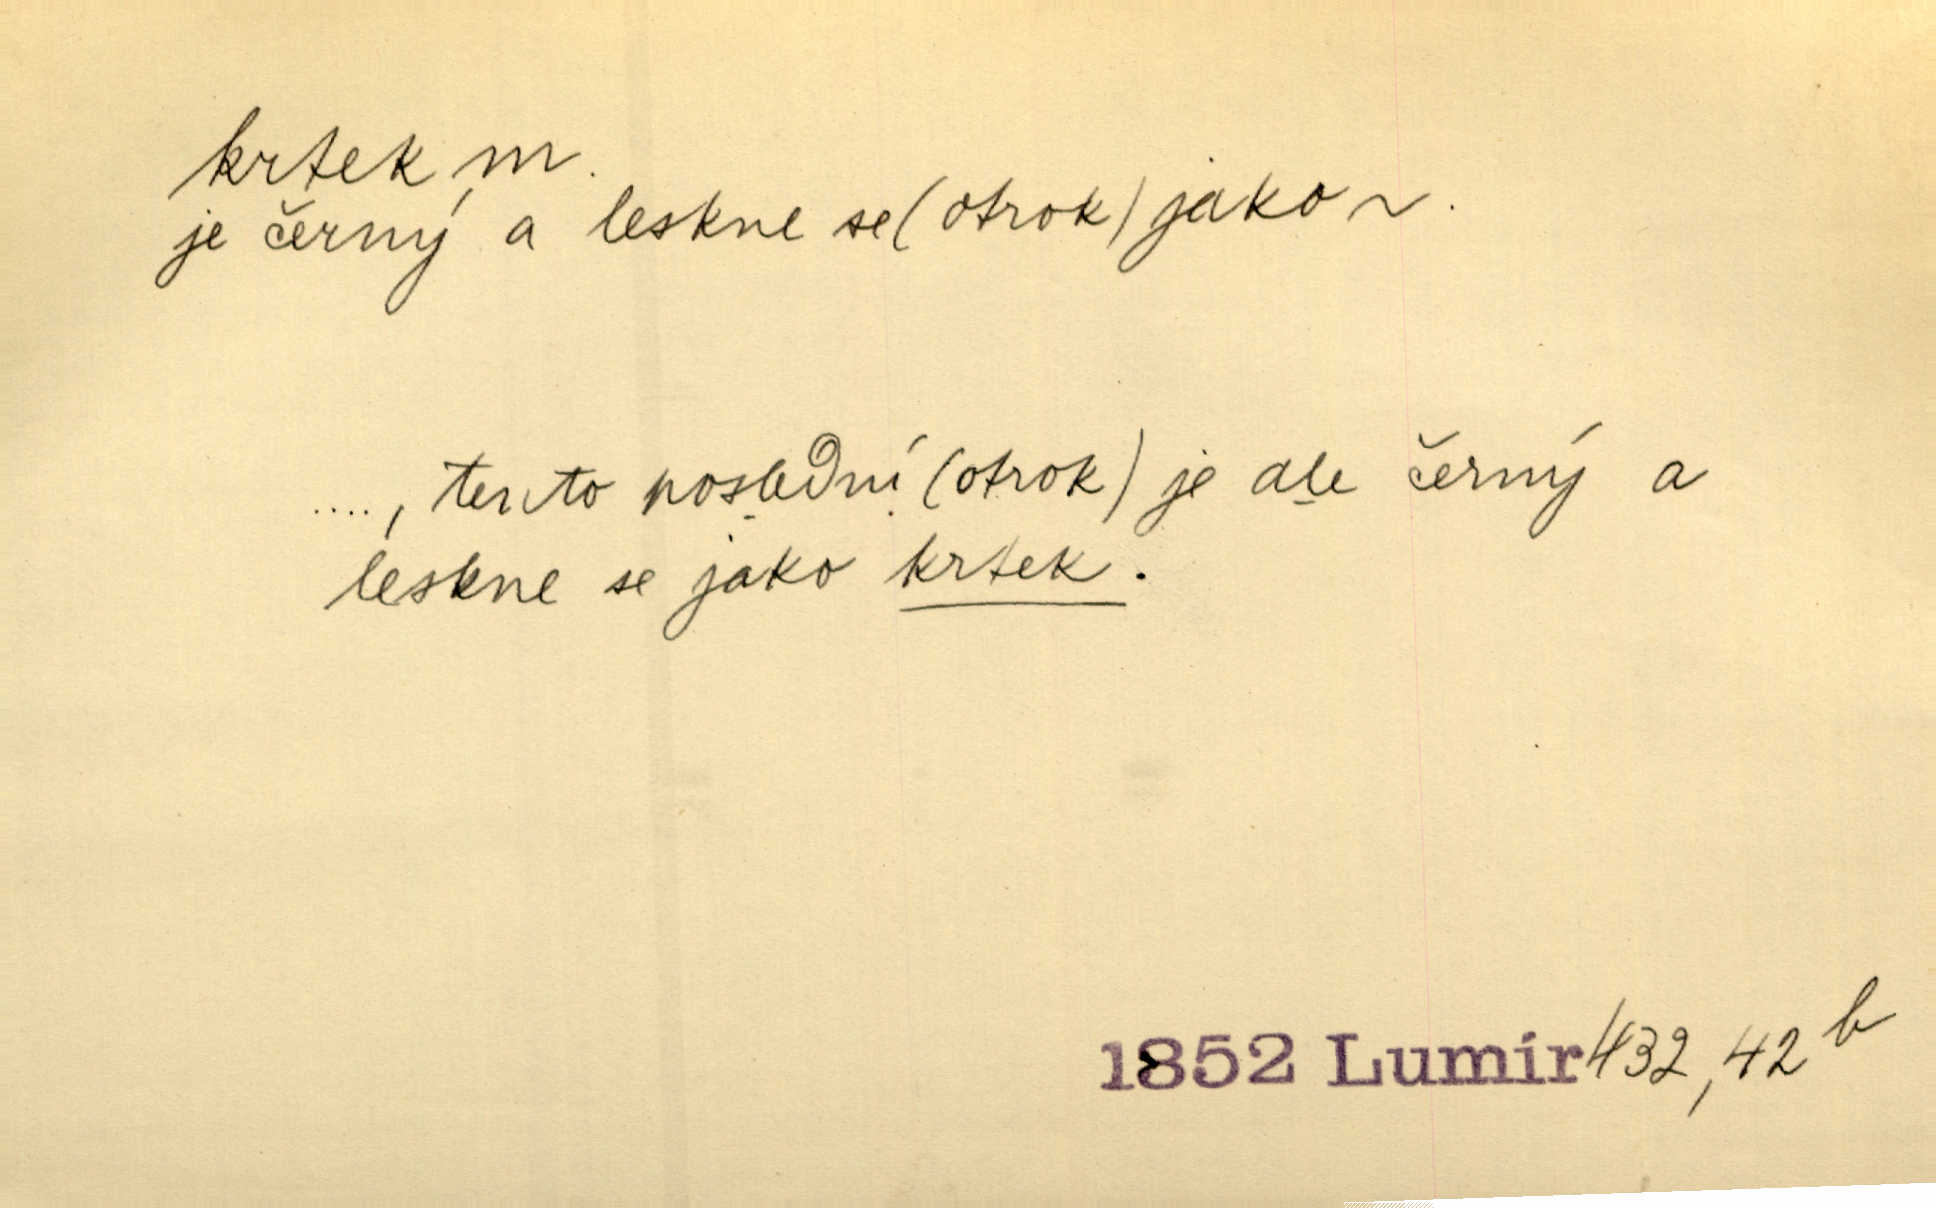 krtek m.
je černý a leskne se (otrok) jako ~.
...., tento poslední (otrok) je ale černý a
leskne se jako krtek.
1852 Lumír 432,42 b